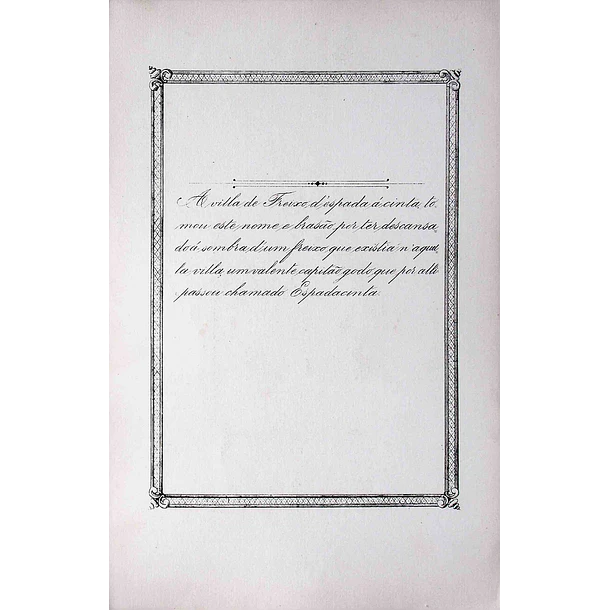 A villa de Freixo d'espada á cinta, to-
mou este nome e brasão por ter descansa-
do á sombra d'um freixo que existia n'aquel-
la villa um valente capitão godo que por alli
passou chamado Espadacinta.